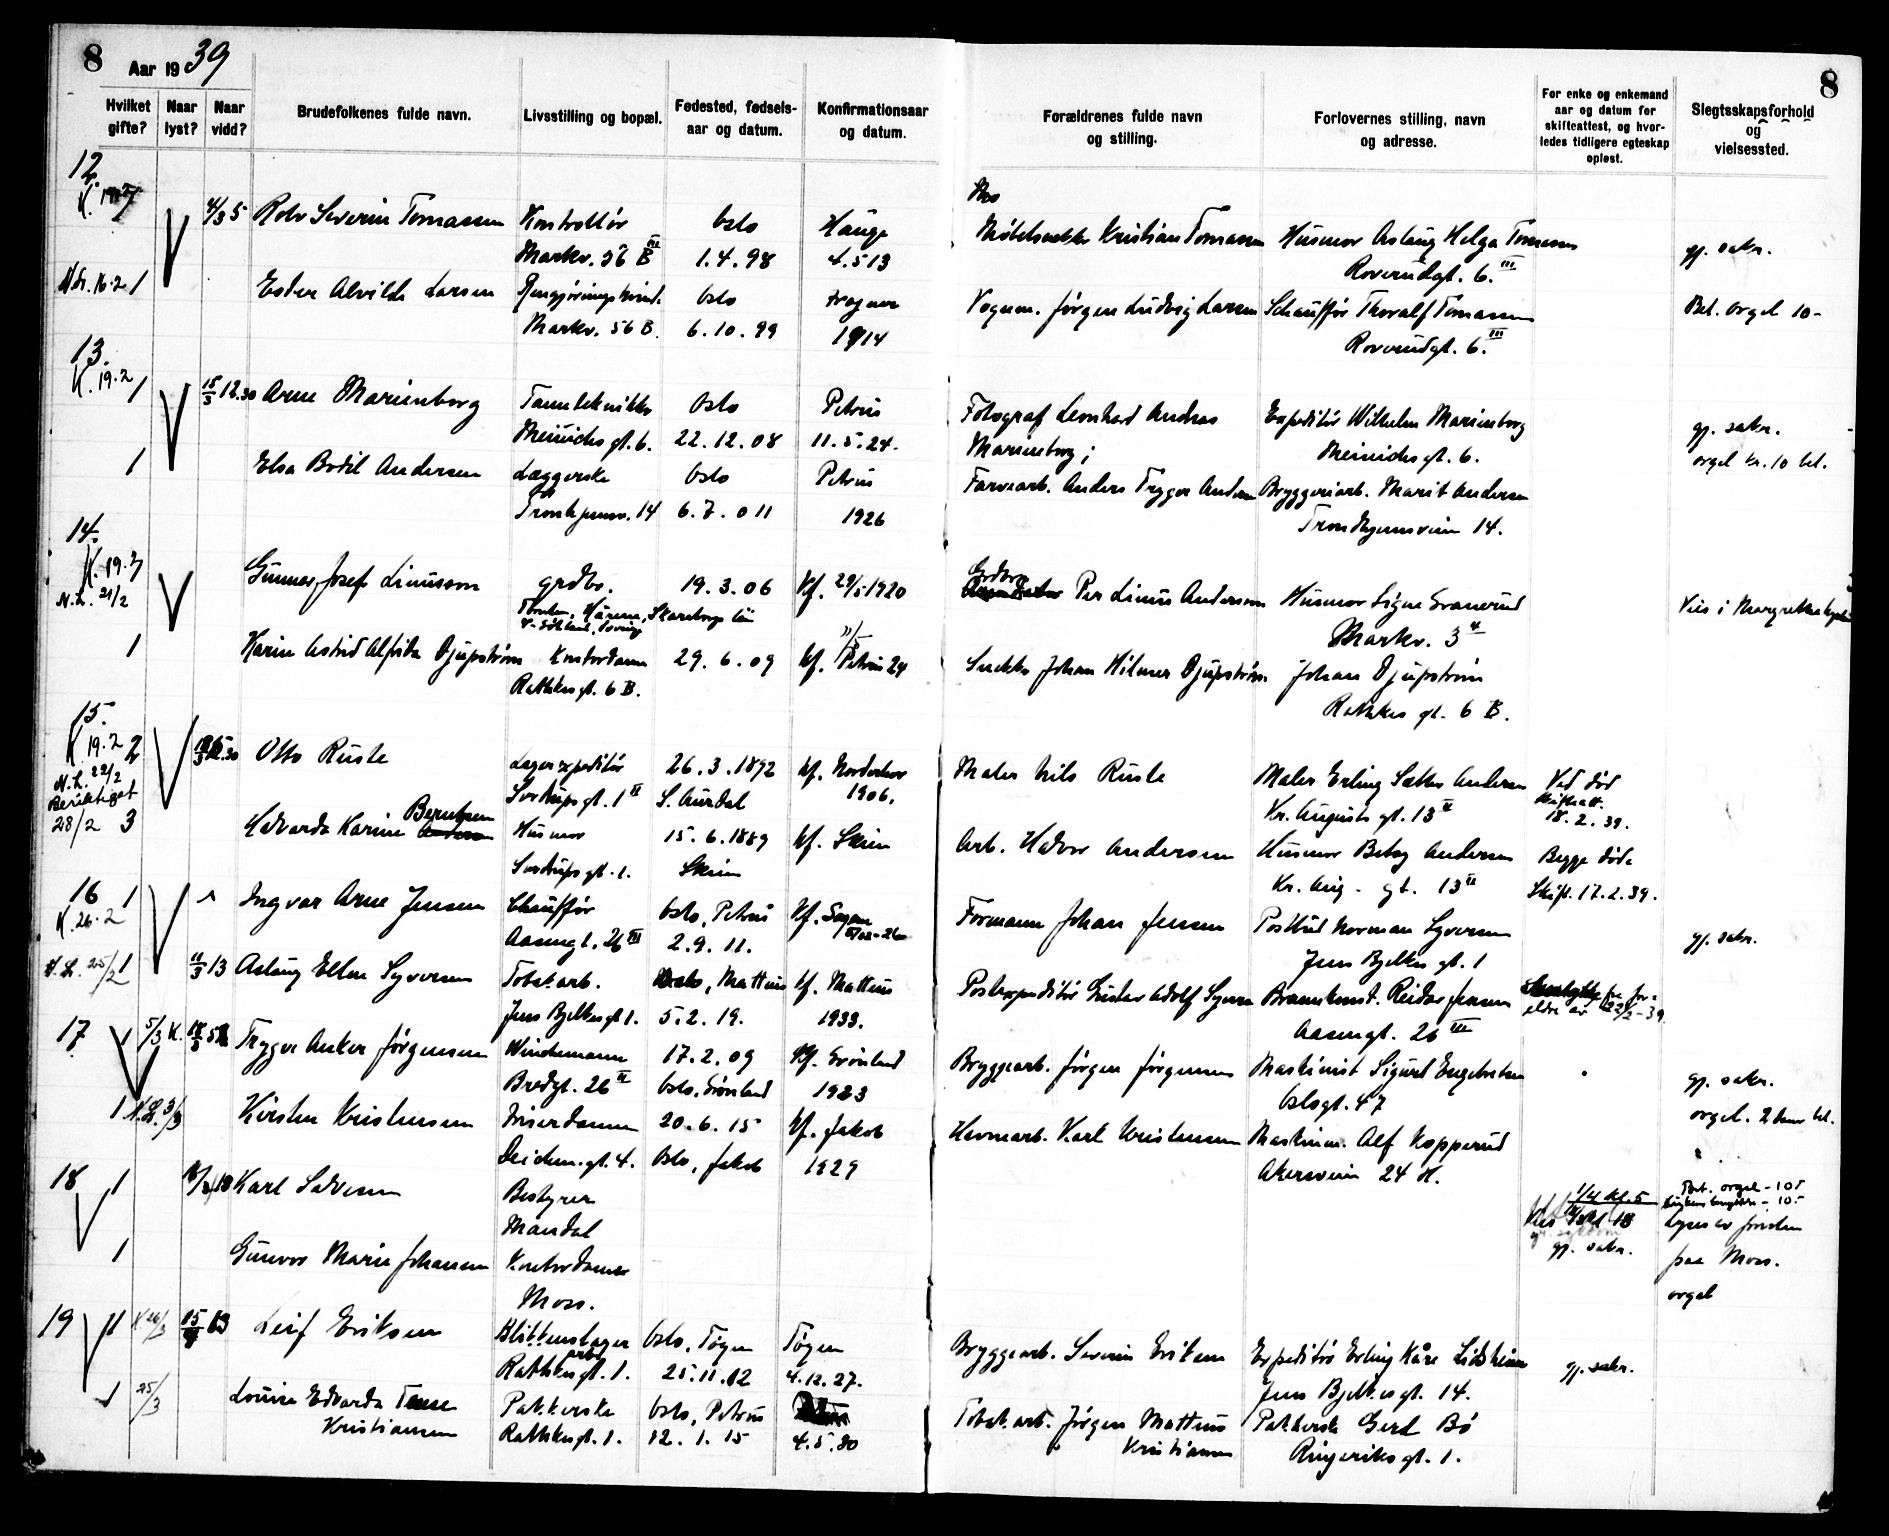 8 Aar 1939
Hvilket gifte?
Naar lyst?
Naar vidd?
Brudefolkenes fulde navn.
Livsstilling og bopæl.
Fødested, fødsels-
aar og datum.
Konfirmationsaar
og datum.
Forældrenes fulde navn
og stilling.
Forlovernes stilling, navn
og adresse.
For enke og enkemand
aar og datum for
skifteattest, og hvor-
ledes tidligere egteskap
opløst.
Slegtsskapsforhold
og
vielsessted.
8
12.
4/3 5 Rolv Severin Tomassen Kontrollør Oslo Hauge Kristian Tomassen Husmor Aslaug Helga Tomassen gj. sakr.
Markv. 56 B III 1.4.98 4.5 13 Roverudgt. 6. III
16.2 1 Ester Alvilde Larsen Oslo Vognm. Jørgen Ludvig Larsen Schauffør Thoralf Tomassen Bet. orgel 10-
Markv. 56 B. 6.10.99 1914 Roverudgt. 6. III
13.
K. 19.2 1 15/3 12.30 Arne Marienborg Tanntekniker Oslo Petrus Fotograf Leonhard Andreas Expeditør Wilhelm Marienborg gj. sakr.
Meinichs gt. 6. 22.12.08 11.5.24. Marienborg; Meinichs gt. 6. orgel kr. 10 bet.
1 Elsa Bodil Andersen Læggerske Oslo Petrus Farvearb. Anders Trygve Andersen Bryggeriarb. Marit Andersen
14 6.7.011 1926 Trondhjemsveien 14.
14.
K. 19.3 Gunnar Josef Linusson grdbr. 19.3.06 Kf. 29/5 1920 Grdbr. Per Linus Andersson Husmor Signe Granerud Vies i Margretha
N.L. 21/2 Skaraborgs län Markv. 3 4
1 Karin Astrid Alfrida Djupstrøm Kontordame 29.6.09 Kf. Petrus 24 Snekker Johan Hilmer Djupstrøm Johan Djupstrøm
Rathkesgt. 6 B. Rathkes gt. 6 B.
15.
K. 19.2 2 Otto Ruste Lagerexpeditør 26.3.1892 Kf. Norderhov Maler Nils Ruste Maler Erling Sæther Andersen Ved død
N.L. 22/2 Sverdrups gt. 1 II S. Aurdal 1906. Kr. Augusts gt. 13 II Skifteatt. 18.2.39.
Beriktiget
28/2 3 Halvarda Karine Berntsen Husmor 15.6.1889 Kf. Skien Arb. Halvor Andersen Husmor Betsy Andersen Begge døde
Sverdrups gt. 1. Skien Kr. Aug. gt. 13 II Skift. 17.2.39.
16 1 Ingvar Arne Jensen Chauffør Oslo, Petrus Kf. Sagene Formann Johan Jensen Postbud Norman Syversen gj. sakr.
K. 26.2 Aasengt. 26 III 2.9.11. Jens Bjelkes gt. 1
25/2 1 11/3 13 Aslaug Ellen Syversen Tobakarb. Oslo, Matteus Kf. Matteus Postexpeditør Gustav Adolf Syversen Brannkonst. Reidar Jensen Samtykke fra for-
Jens Bjelkesgt. 1. 5.2.19. 1933. Aasengt. 26 III eldre av 22/2-39.
17 1 5/3 K. 18/3 5 Trygve Anker Jørgensen Windemann 17.2.09 Kf. Grønland Bryggearb. Jørgen Jørgensen Maskinist Sigurd Engebretsen gj. sakr.
Bredgt. 26 II Oslo, Grønland 1923 Oslogt. 47 orgel. bet.
1 N.L. 3/3 Kirsten Kristensen Friserdame 20.6.15 Kf. Jakob Havnearb. Karl Kristensen Maskinm. Alf Kopperud
Deichm. gt. 4. Oslo, Jakob 1929 Akersveien 24 H.
18 1 18/3 18 Karl Salvesen Bestyrer 1/4 kl. 5 Bet. orgel - 10.-
Mandal kl 18 Lyses av
1 Gunvor Marie Johansen Kontordame gj. sakr. paa Moss.
Moss. orgel
19 1 K 26/3 13 Leif Eriksen Blikkenslager Oslo, Tøyen Tøyen Bryggearb. Severin Eriksen Expeditør Erling Kåre Lidsheim gj. sakr.
Rathkesgt. 1. 25.11.12 4.12.27. Jens Bjelkesgt. 14.
1 25/3 Louise Edvarda Pakkerske Oslo, Petrus Tobak. arb. Jørgen Matteus Pakkerske Gerd Bø
Kristiansen Rathkesgt. 1. 12.1.15 4.5.30 Kristiansen Ringeriks gt. 1.